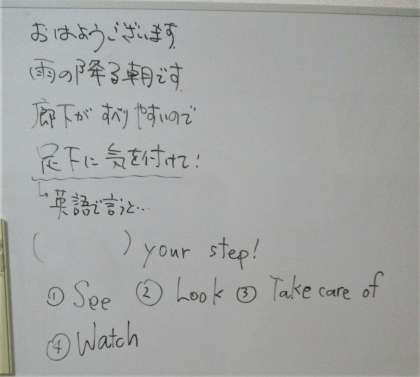 おはようございます
雨の降る朝です
廊下がすべりやすいので
足下に気を付けて!
↳英語で言うと…
(   ) your step!
① See ② Look ③ Take care of
④ Watch